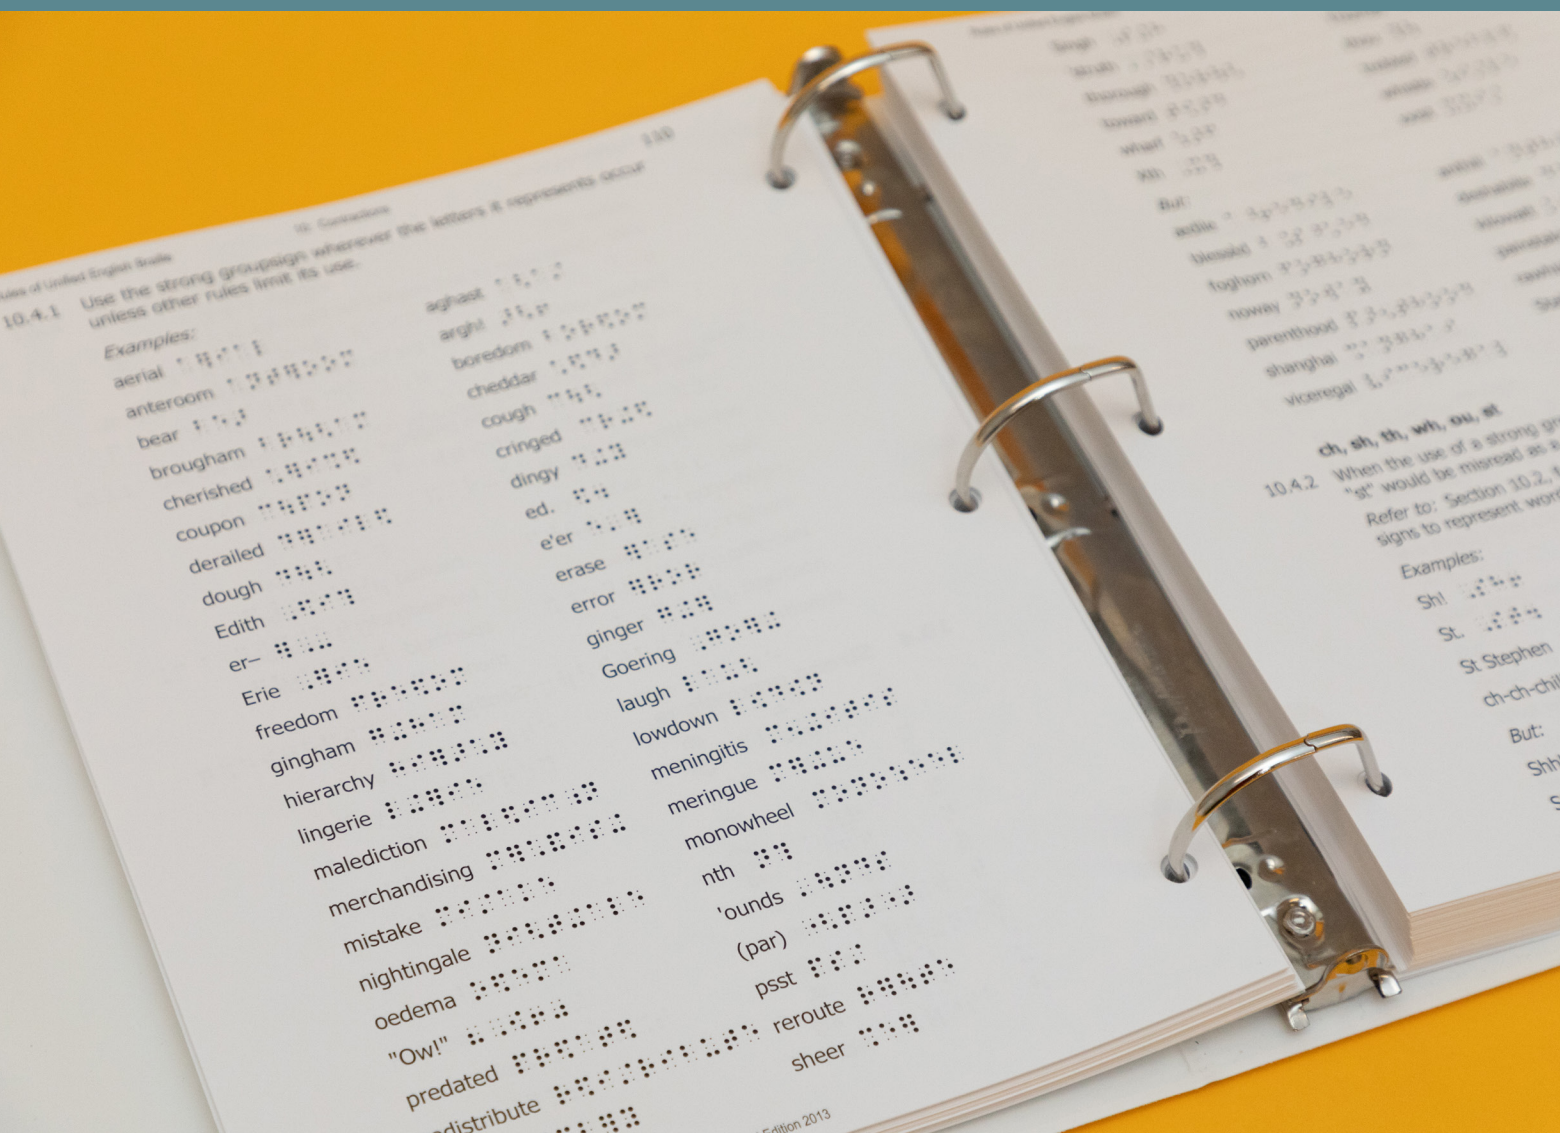 Rules of Unified English Braille
10: Contractions
110
10.4.1 Use the strong groupsign wherever the letters it represents occur
unless other rules limit its use.
Examples:
aerial
anteroom
bear
brougham
cherished
coupon
derailed
dough
Edith
er–
Erie
freedom
gingham
hierarchy
lingerie
malediction
merchandising
mistake
nightingale
oedema
"Ow!"
predated
distribute
aghast
argh!
boredom
cheddar
cough
cringed
dingy
ed.
e'er
erase
error
ginger
Goering
laugh
lowdown
meningitis
meringue
monowheel
nth
'ounds
(par)
psst
reroute
sheer
Edition 2013
Singh
Wrath
thorough
toward
wharf
Xth
But:
ardile
foghorn
noway
parenthood
shanghai
viceregal
ch, sh, th, wh, ou, st
10.4.2 When the use of a strong
"st" would be misread as a
Refer to: Section 10.2,
signs to represent
Examples:
Sh!
St.
St Stephen
But: